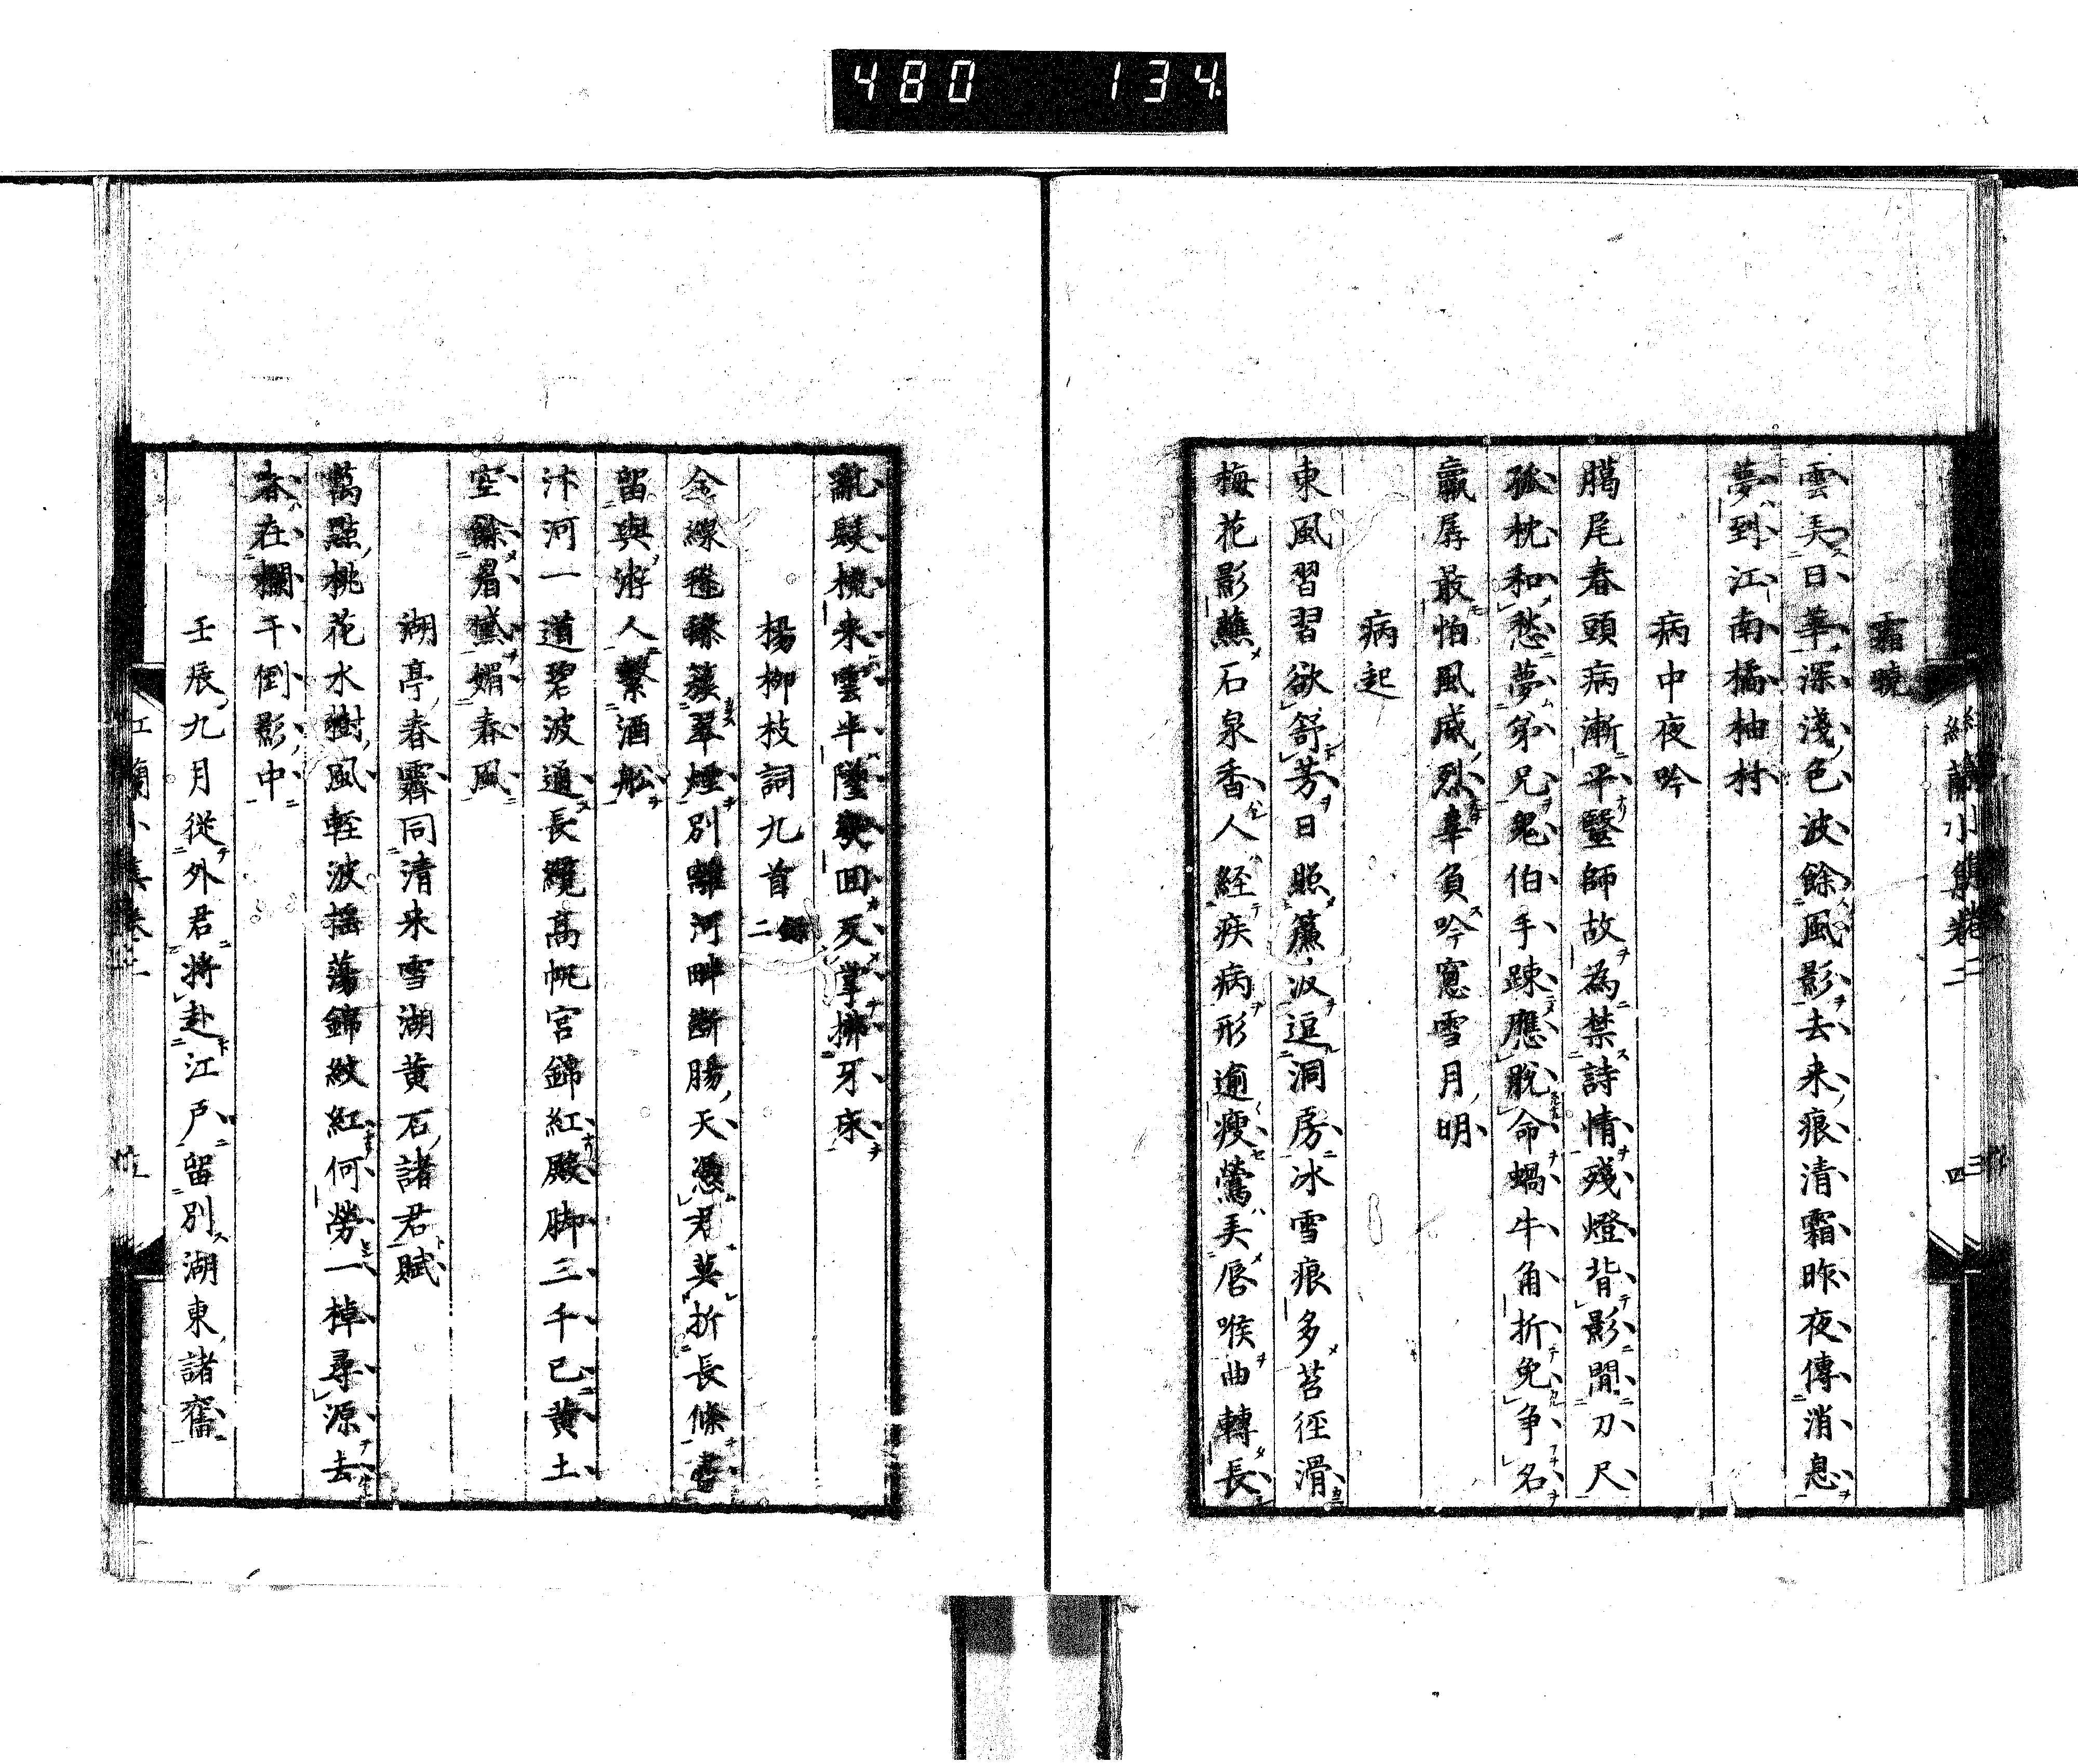 480 134
紅蘭小集卷二
霜曉
雲弄日華深淺色波餘風影去来痕清霜昨夜傳消息
夢到江南橘柚村
病中夜吟
臈尾春頭病漸平毉師故為禁詩情殘燈背影閒刀尺
孤枕和愁夢弟兄鬼伯手踈應脫命蝸牛角折免争名
羸孱最怕風威烈辜負吟窻雪月明
病起
東風習習欲舒芳日照簾汲逗洞房冰雪痕多苔徑滑
梅花影蘸石泉香人経疾病形逾瘦鶯弄唇喉曲轉長
亂髮梳来雲半墮回反掌拂牙床
楊柳枝詞九首 錄二
金縷毿毿蔟翠煙別離河畔斷腸天憑君莫折長條盡
留與游人繫酒舩
汴河一道碧波通長纜高帆宮錦紅殿脚三千已黄土
空餘眉黛媚春風
湖亭春霽同清来雪湖黄石諸君賦
萬點桃花水樹風輕波揺蕩錦紋紅何勞一棹尋源去
春在欄干倒影中
壬辰九月從外君將赴江戸留別湖東諸舊
紅蘭小集卷二